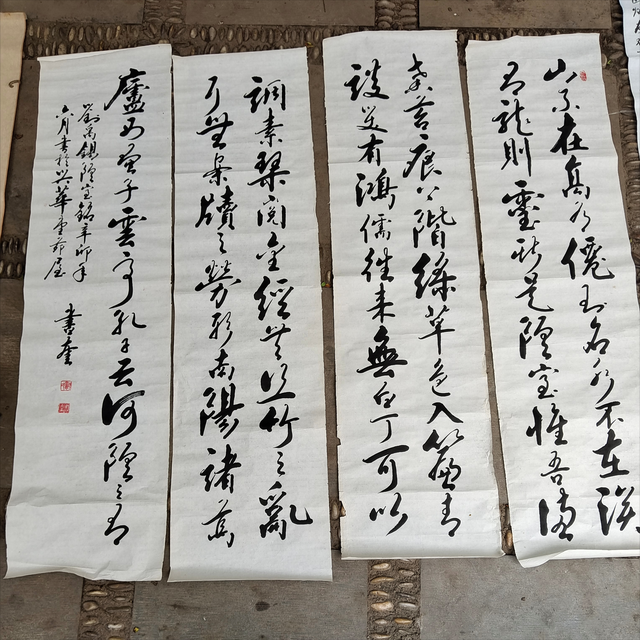 山不在高有僊則名水不在深
有龍則靈斯是陋室惟吾德
馨苔痕上階綠草色入簾青
談笑有鴻儒往來無白丁可以
調素琴閱金經無絲竹之亂
耳無案牘之勞形南陽諸葛
廬西蜀子雲亭孔子云何陋之有
劉禹錫陋室銘辛卯年
六月書於興華
書奎